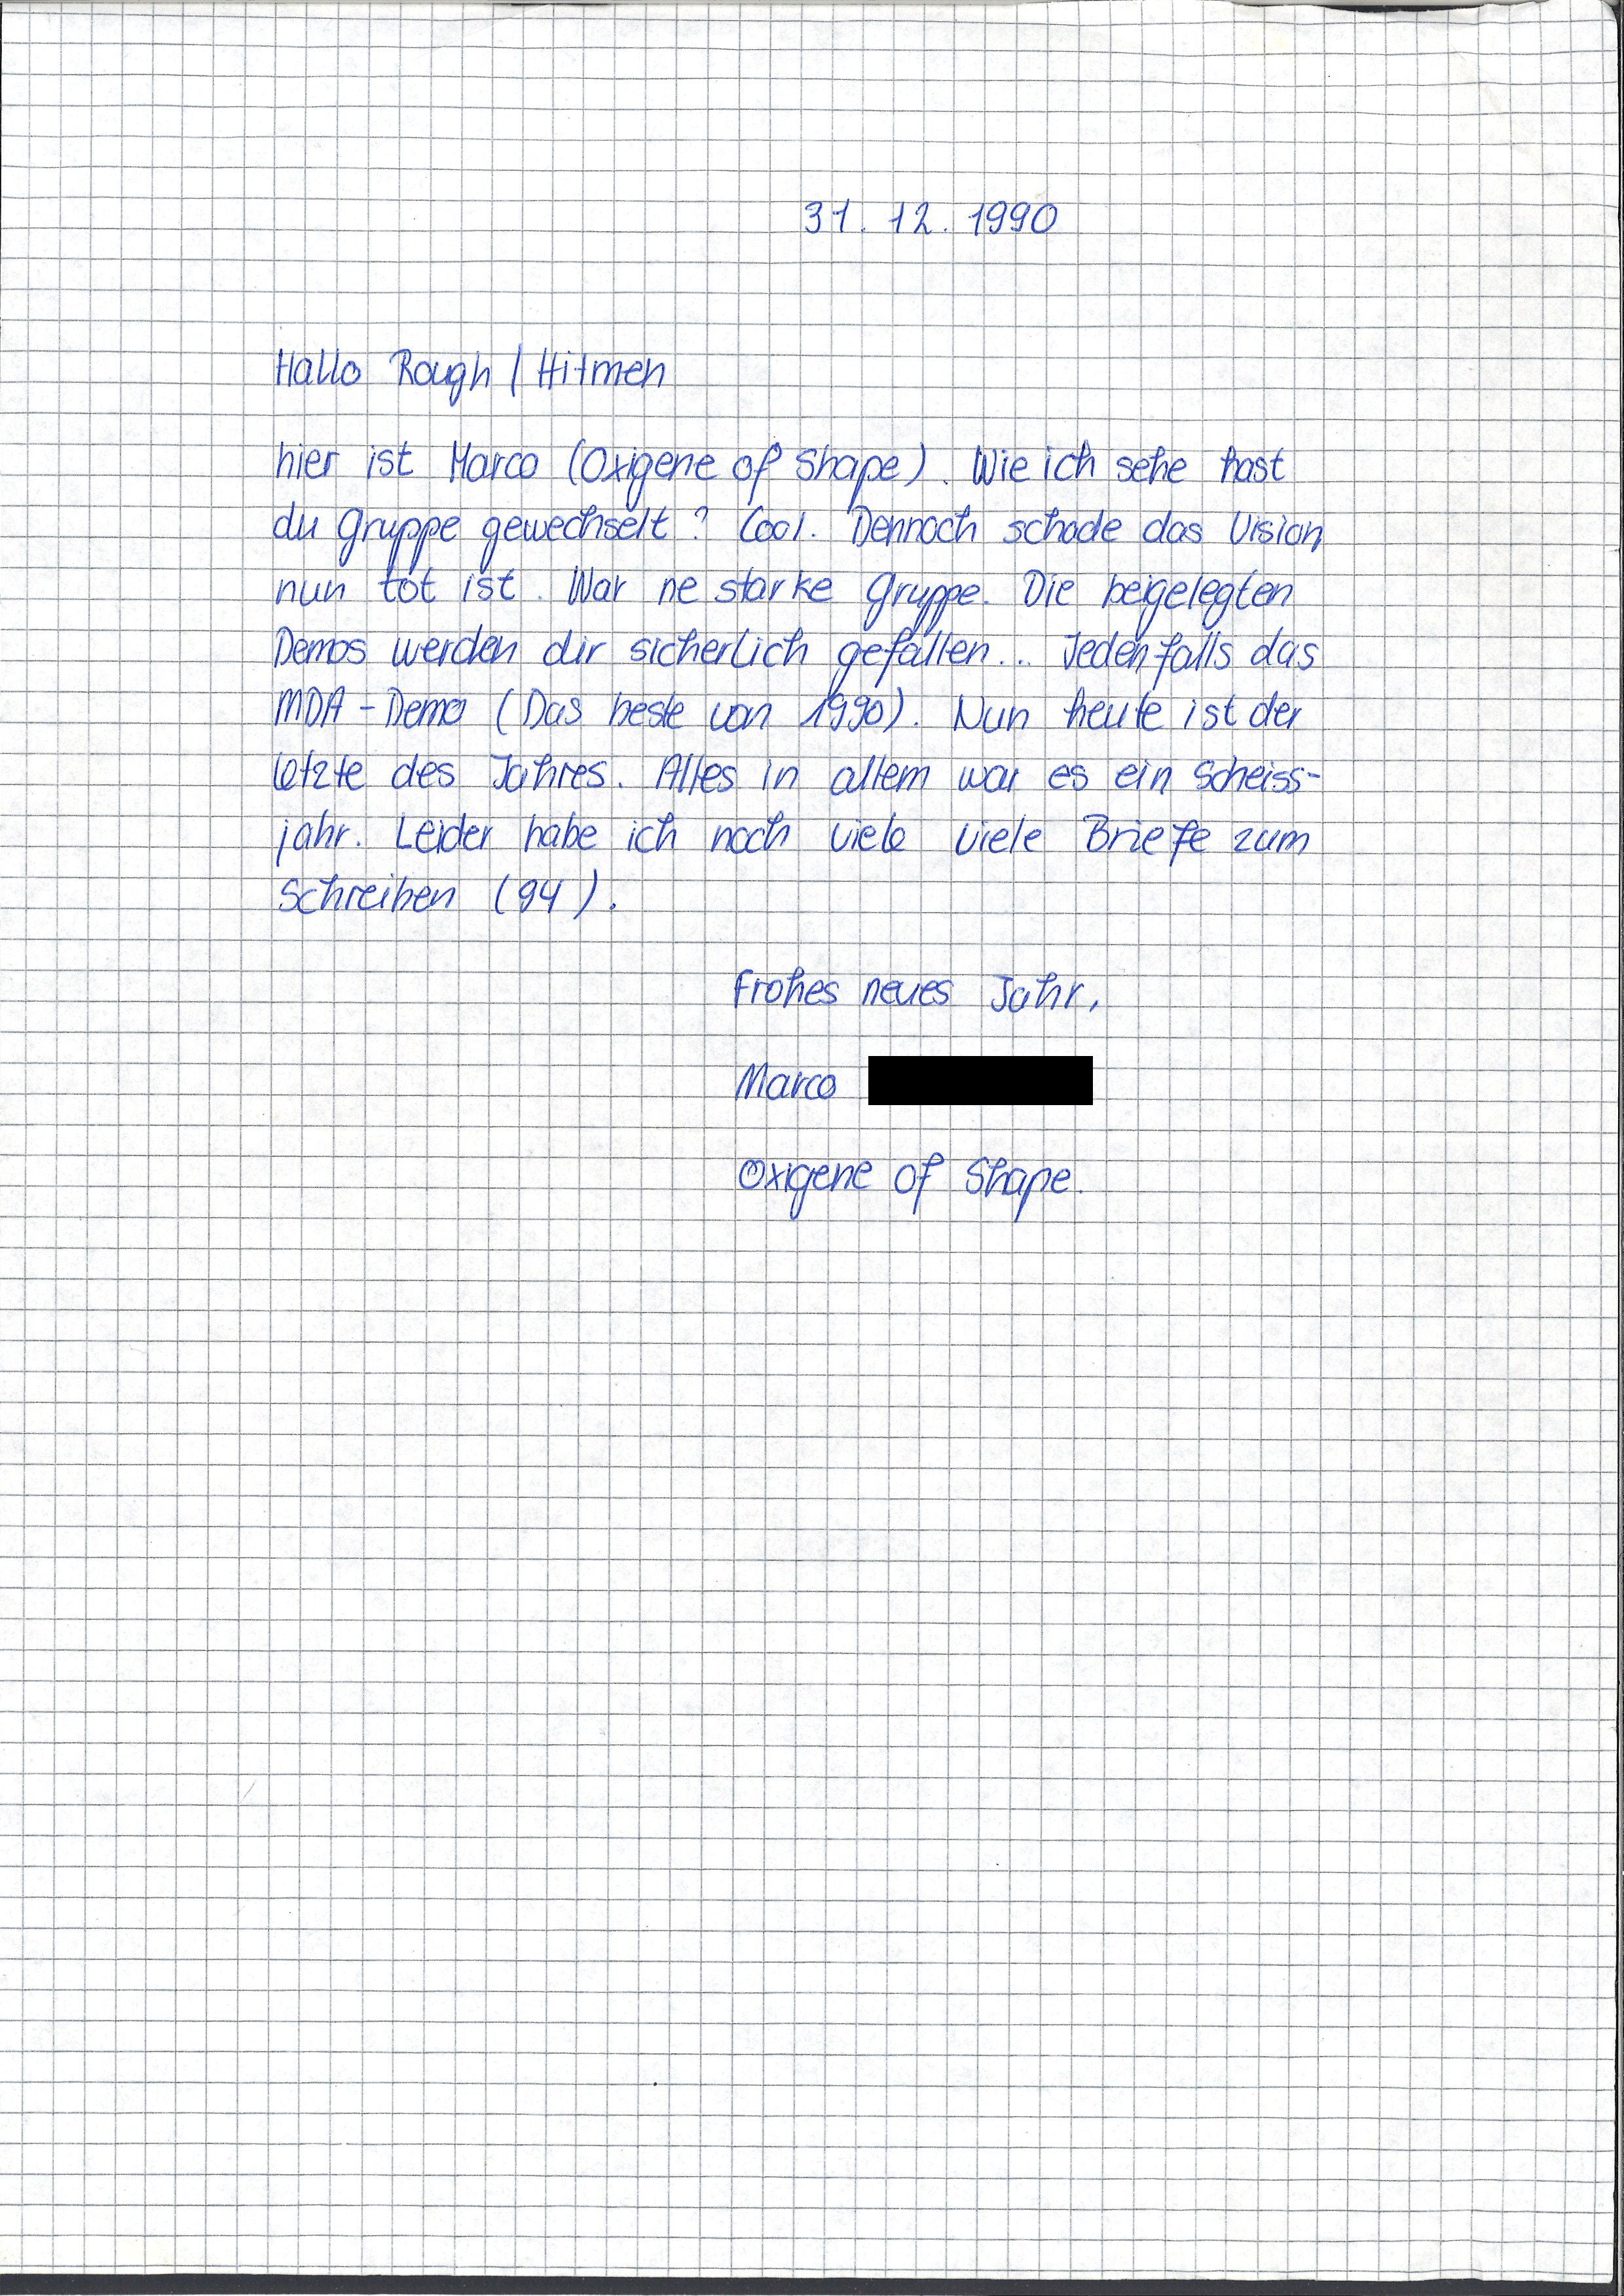 31. 12. 1990
Hallo Rough / Hitmen
hier ist Marco (Oxigene of Shape). Wie ich sehe hast
du Gruppe gewechselt? Cool. Dennoch schade das Vision
nun tot ist. War ne starke Gruppe. Die beigelegten
Demos werden dir sicherlich gefallen... Jedenfalls das
MDA - Demo (Das beste von 1990). Nun heute ist der
letzte des Jahres. Alles in allem war es ein Scheiss-
jahr. Leider habe ich noch viele viele Briefe zum
Schreiben (94).
Frohes neues Jahr,
Marco
Oxigene of Shape.